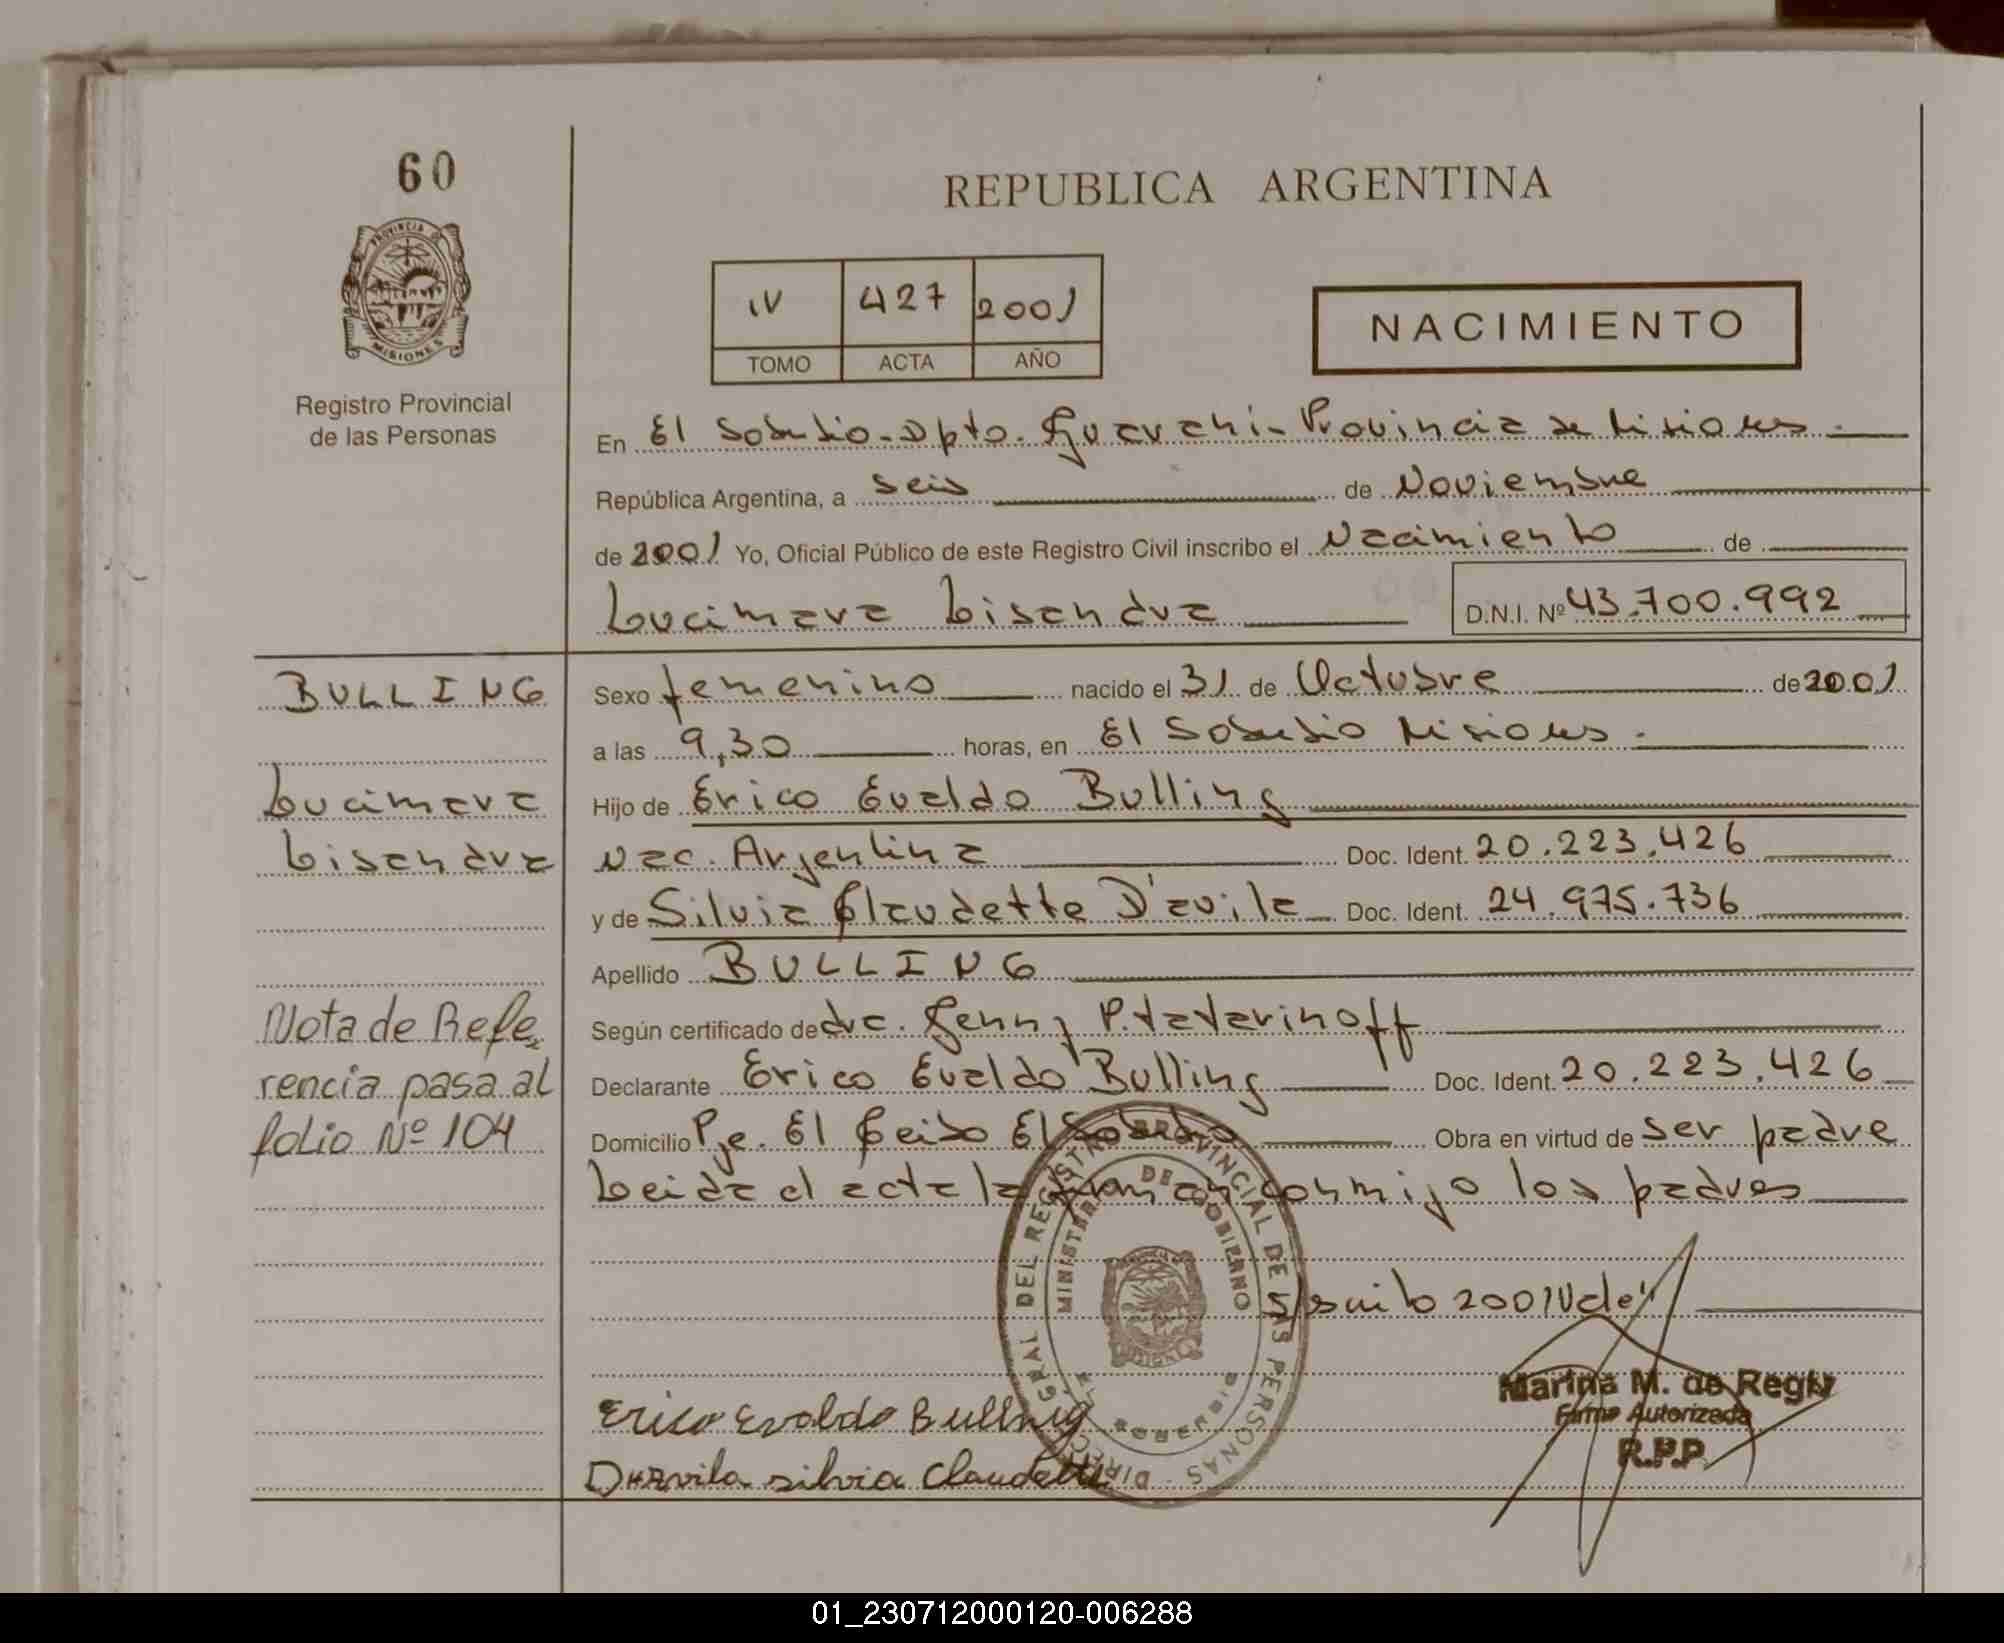 60
PROVINCIA DE
MISIONES
Registro Provincial
de las Personas
REPUBLICA ARGENTINA
IV 427 2001
TOMO ACTA AÑO
NACIMIENTO
En El Soberbio - Dpto. Guarani - Provincia de Misiones.-
República Argentina, a seis de Noviembre
de 2001 Yo, Oficial Público de este Registro Civil inscribo el Nacimiento de
Lucimara Lisandra D.N.I. Nº 43.700.992
BULLING
Lucimara
Lisandra
Nota de Refe
rencia pasa al
folio Nº 104
Sexo femenino nacido el 31 de Octubre de 2001
a las 9,30 horas, en El Soberbio Misiones.-
Hijo de Erico Evaldo Bulling
Nac. Argentina Doc. Ident. 20.223.426
y de Silvia Claudette D'avila Doc. Ident. 24.975.736
Apellido BULLING
Según certificado de dra. Jenny P. tatarinoff
Declarante Erico Evaldo Bulling Doc. Ident. 20.223.426
Domicilio Pje. El Ceibo El Soberbio Obra en virtud de ser padre
Leida el acta la firman conmigo los padres
S/escrito 2001 Vale"
DIRECC GRAL DEL REGISTRO PROVINCIAL DE LAS PERSONAS
MINISTERIO DE GOBIERNO
EL SOBERBIO
Erico Evaldo Bulling
D'Avila silvia Claudette
Marina M. de Regis
Firma Autorizada
R.P.P.
01_230712000120-006288